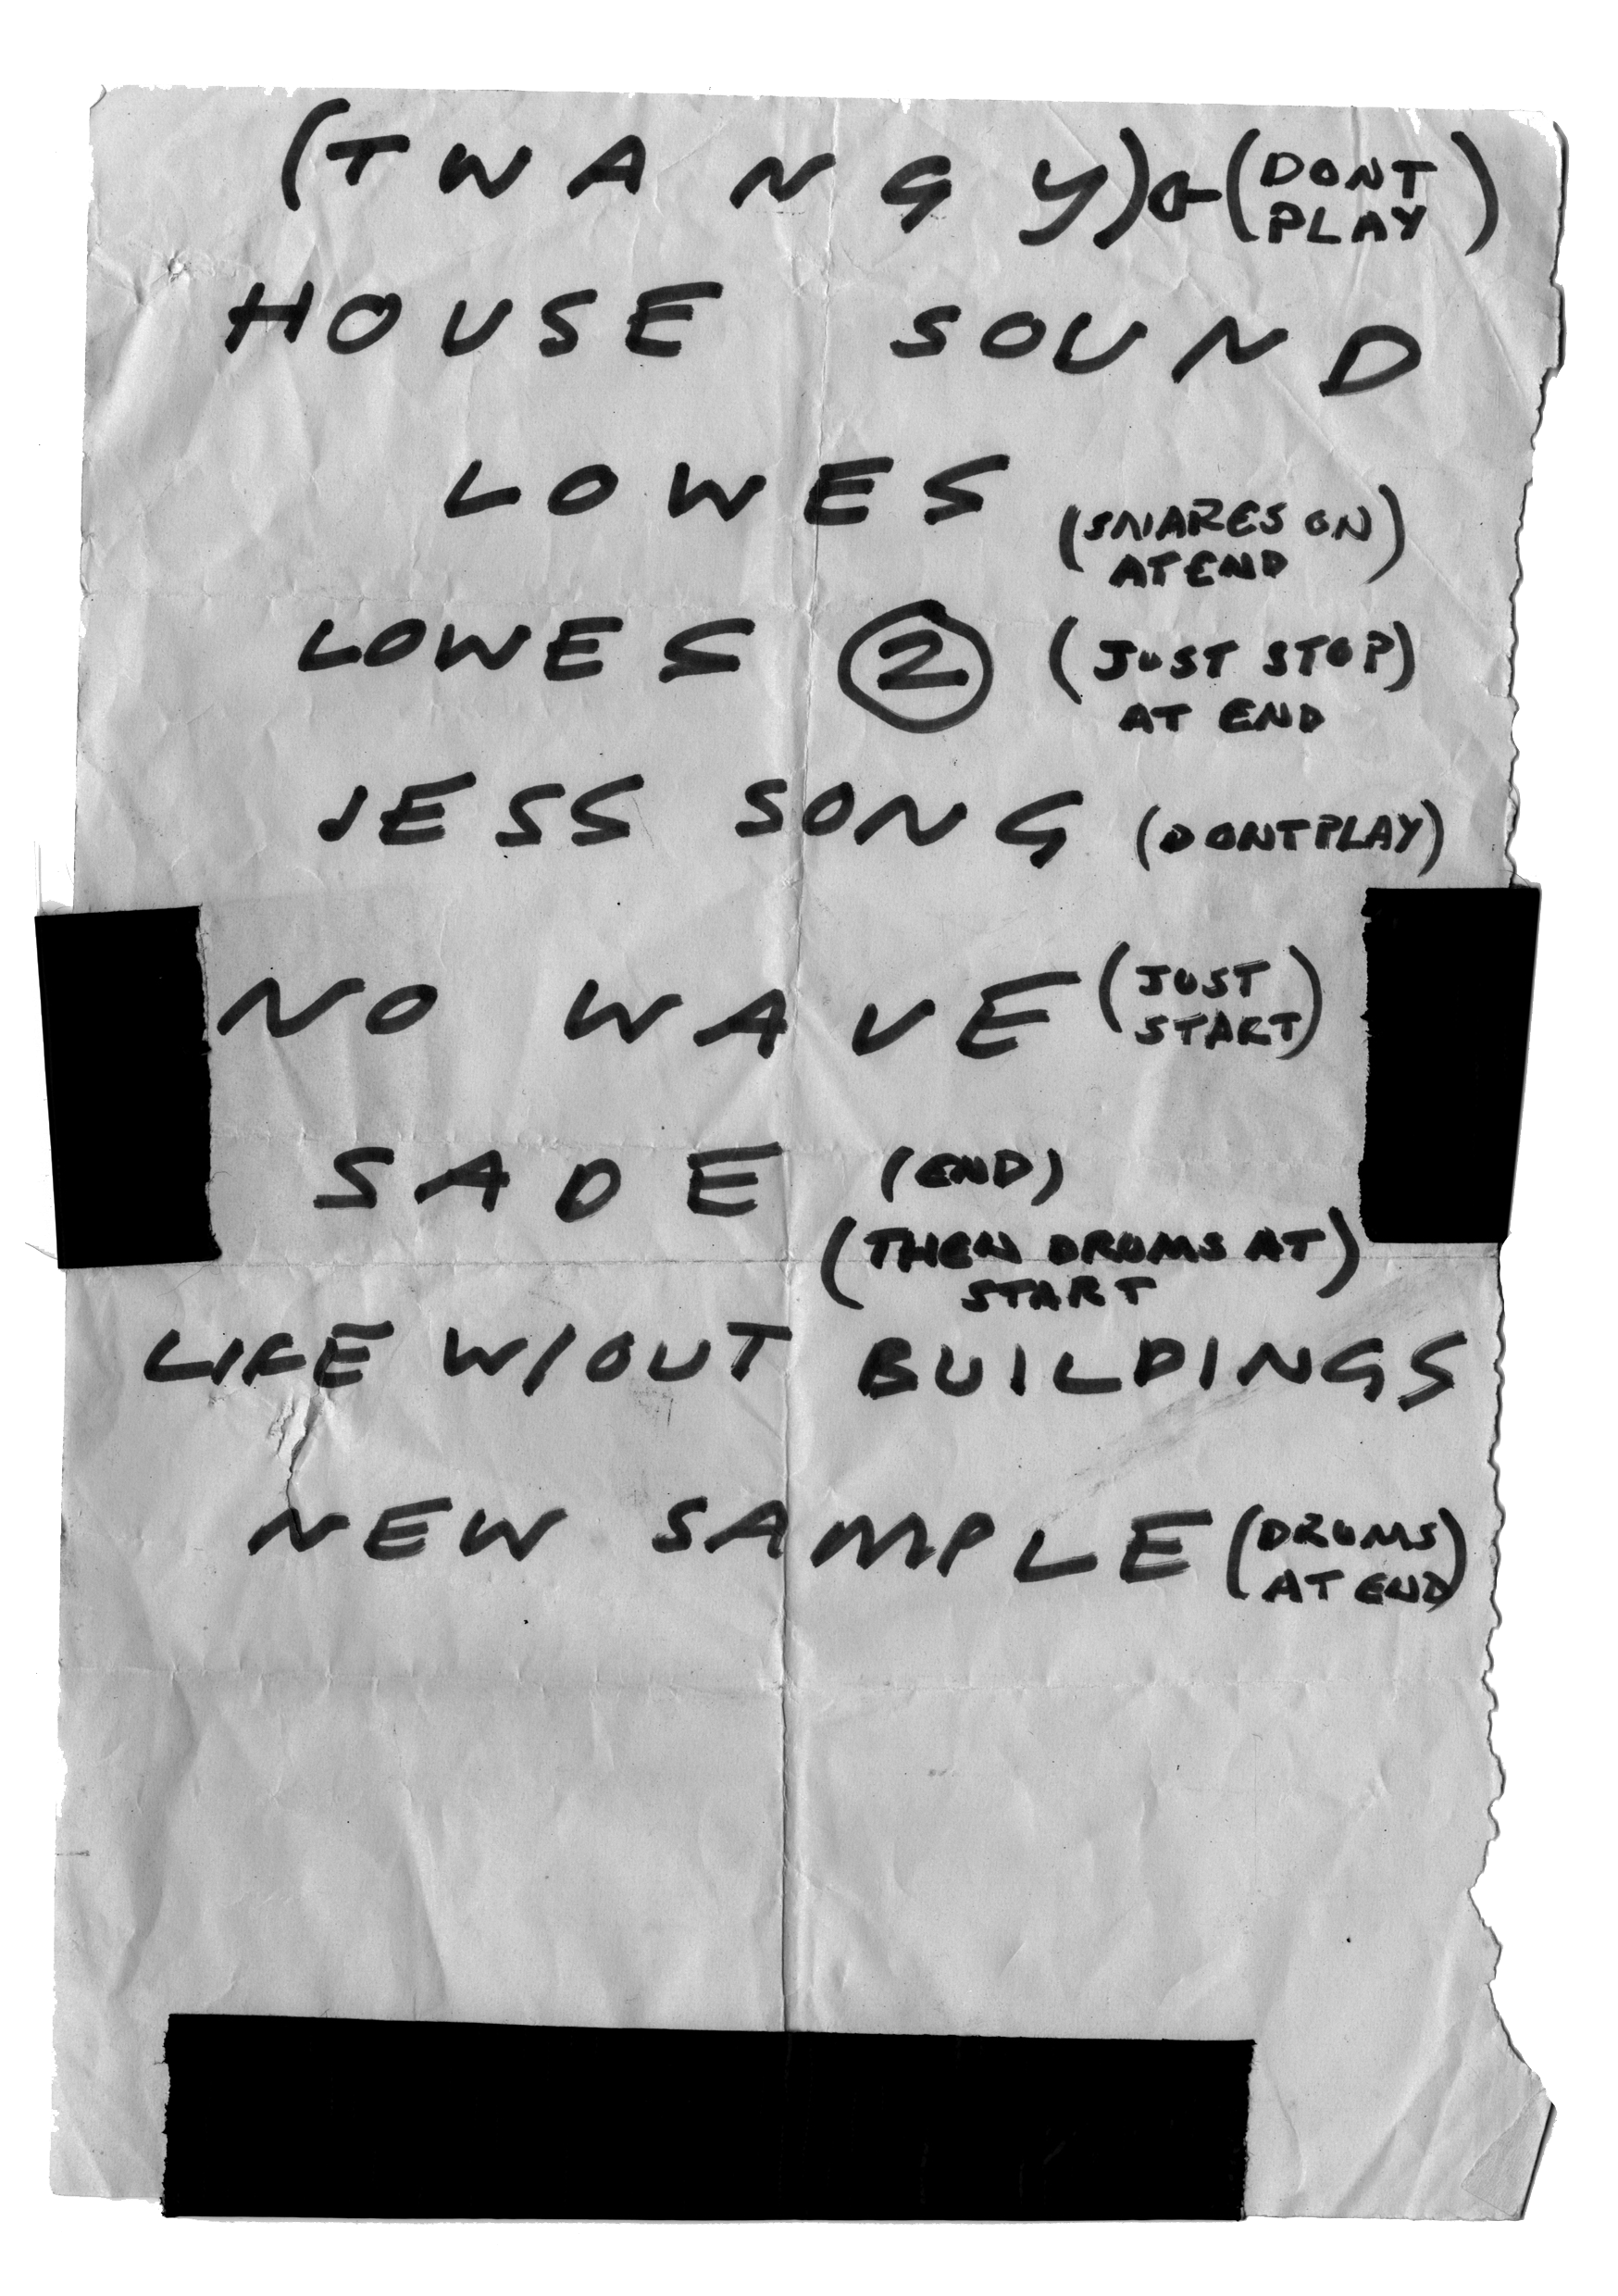 (TWANGY) ← (DONT PLAY)
HOUSE SOUND
LOWES (SNARES ON) AT END
LOWES ② (JUST STOP) AT END
JESS SONG (DONT PLAY)
NO WAVE (JUST START)
SADE (END)
(THEN DRUMS AT) START
LIFE W/OUT BUILDINGS
NEW SAMPLE (DRUMS AT END)